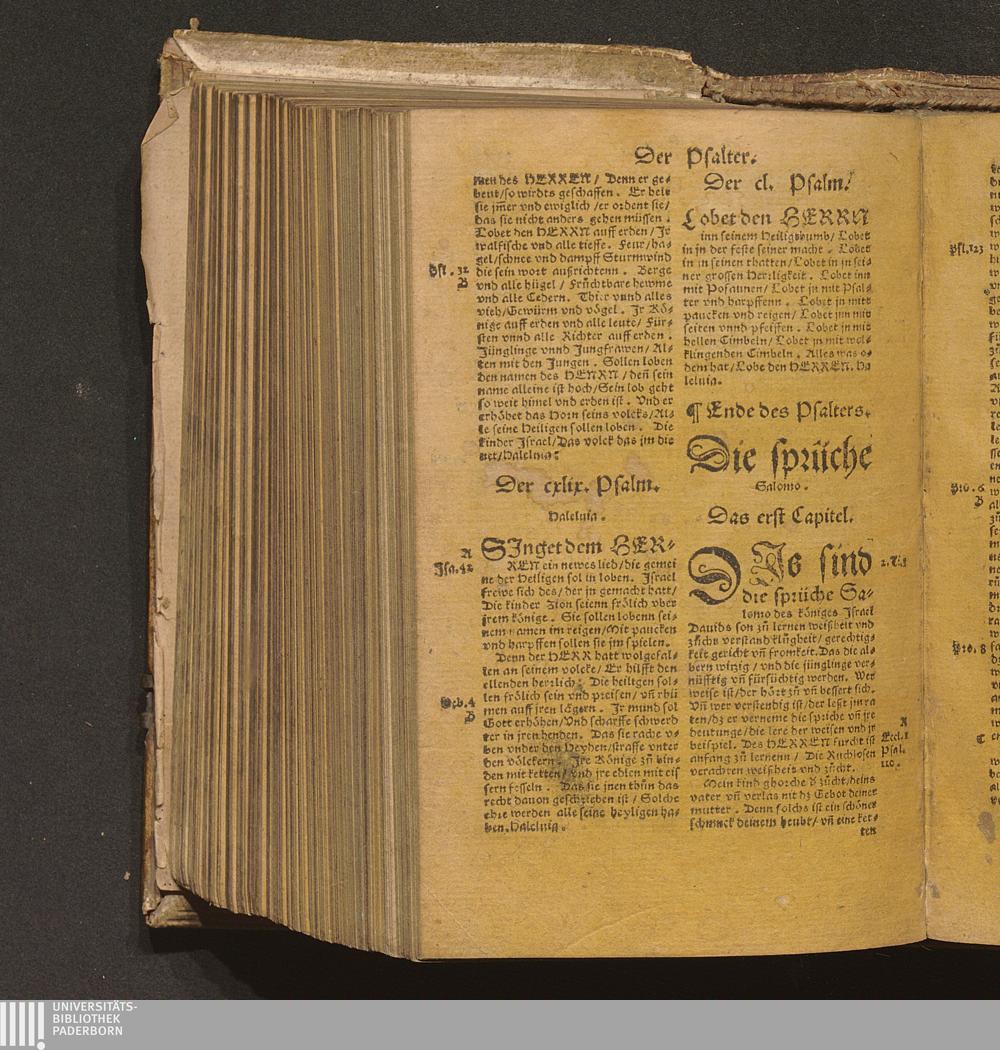 Der Psalter.
men des HERREN / Denn er ge-
beut/so wirdts geschaffen. Er helt
sie jm̃er vnd ewiglich / er ordent sie/
das sie nicht anders gehen müssen.
Lobet den HERRN auff erden / Jr
walfische vnd alle tieffe. Feur/ha-
gel/schnee vnd dampff Sturmwind
Psl. 32
die sein wort außrichtenn. Berge
B
vnd alle hügel / Früchtbare bewme
vnd alle Cedern. Thier vnnd alles
vieh/Gewürm vnd vögel. Jr Kö-
nige auff erden vnd alle leute/ Für-
sten vnnd alle Richter auff erden.
Jünglinge vnnd Jungfrawen/ Al-
ten mit den Jungen. Sollen loben
den namen des HERRN / deñ sein
name alleine ist hoch/Sein lob geht
so weit himel vnd erden ist. Vnd er
erhöhet das Horn seins volcks/Al-
le seine Heiligen sollen loben. Die
kinder Israel/Das volck das jm die
net/Haleluia:
Der cxlix. Psalm.
Haleluia.
A
SInget dem HER-
Isa. 42
REN ein newes lied/die gemei
ne der Heiligen sol in loben. Israel
frewe sich des/der jn gemacht hatt/
Die kinder Zion seienn frölich vber
jrem könige. Sie sollen lobenn sei-
nem namen im reigen/Mit paucken
vnd harpffen sollen sie jm spielen.
Denn der HERR hatt wolgefal-
len an seinem volcke/ Er hilfft den
ellenden herzlich: Die heiligen sol-
len frölich sein vnd preisen/ vñ rhü
Heb. 4
men auff jren lägern. Jr mund sol
B
Gott erhöhen/Vnd scharffe schwerd
ter in jren henden. Das sie rache v-
ben vnder den Heyden/straffe vnter
den völckern. Jre Könige zů bin-
den mit ketten/ vnd jre edlen mit eis
sern fesseln. Das sie jnen thůn das
recht dauon geschrieben ist / Solche
ehre werden alle seine heyligen ha-
ben. Haleluia.
Der cl. Psalm.
Lobet den HERRN
inn seinem Heiligthumb/ Lobet
in jn der feste seiner macht. Lobet
in in seinen thatten/Lobet in jn sei-
ner grossen Herrligkeit. Lobet inn
mit Posaunen/ Lobet jn mit Psal-
ter vnd harpffenn. Lobet jn mitt
paucken vnd reigen/ Lobet jnn mit
seiten vnnd pfeiffen. Lobet jn mit
hellen Cimbeln/ Lobet jn mit wol-
klingenden Cimbeln. Alles was o-
dem hat/Lobe den HERREN. Ha
leluia.
¶ Ende des Psalters.
Die sprüche
Salomo.
Das erst Capitel.
DIs sind
die sprüche Sa-
lomo des königes Israel
Dauids son zů lernen weißheit vnd
zücht verstand klůgheit/ gerechtig-
keit gericht vñ fromkeit. Das die al-
bern witzig / vnd die jünglinge ver-
nüfftig vñ fürsichtig werden. Wer
weise ist/der hört zů vñ bessert sich.
Vñ wer verstendig ist/der lest jm ra
ten/dz er verneme die sprüche vñ jre
deutunge/die lere der weisen vnd jr
A
beispiel. Des HERREN furcht ist
Eccl. 1
anfang zů lernenn / Die Ruchlosen
Psal.
110.
verachten weißheit vnd zücht.
Mein kind ghorche d̕ zücht/deins
vater vñ verlas nit dz Gebot deiner
mutter. Denn solchs ist ein schöner
schmuck deinem heubt/ vñ eine ket-
ten
Psl. 123
Pro. 6
B
Pro. 8
C
UNIVERSITÄTS-
BIBLIOTHEK
PADERBORN